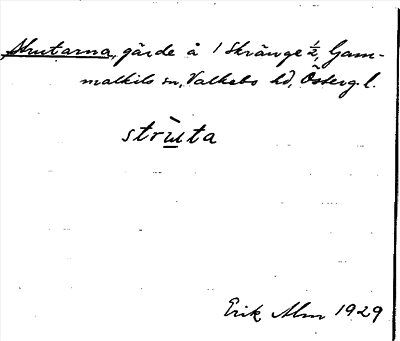 Strutarna, gärde å 1 Skränge ½, Gam-
malkils sn, Valkebo hd, Österg. l.
strùta
Erik Alm 1929